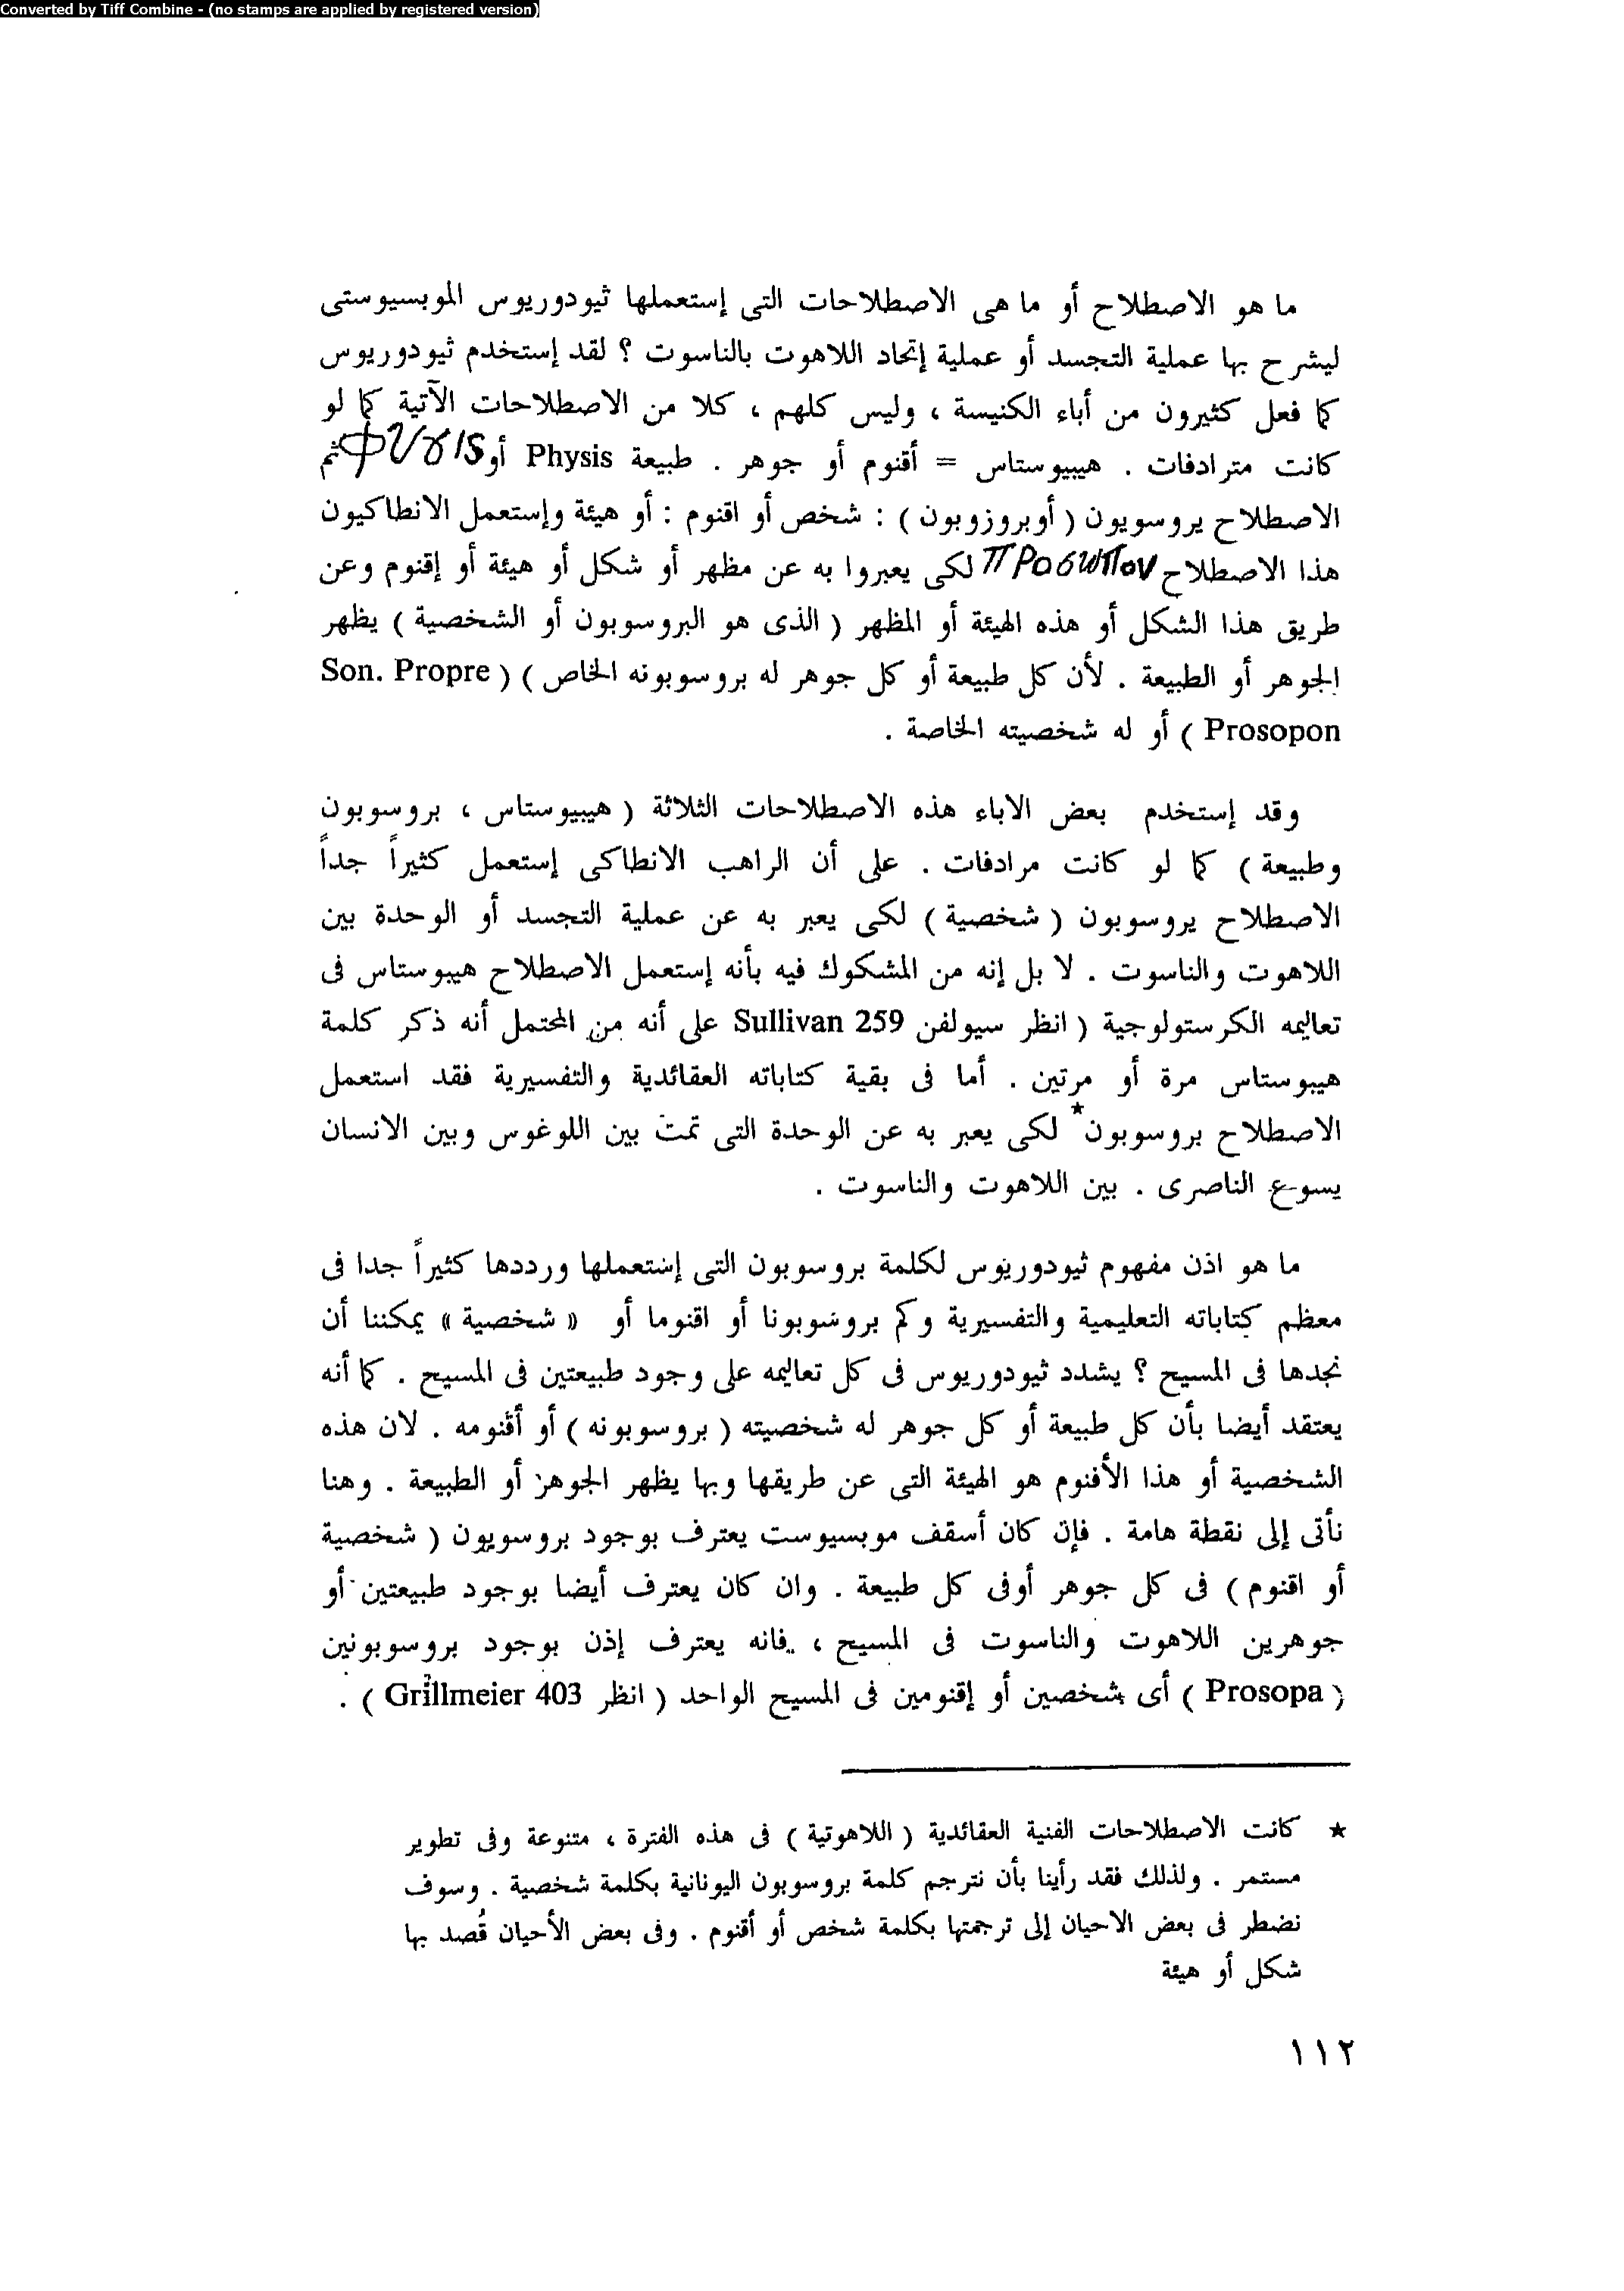 Converted by Tiff Combine - (no stamps are applied by registered version)
ما هو الاصطلاح أو ما هى الاصطلاحات التى إستعملها ثيودوريوس الموبسيوستى
ليشرح بها عملية التجسد أو عملية إتحاد اللاهوت بالناسوت ؟ لقد إستخدم ثيودوريوس
كما فعل كثيرون من أباء الكنيسة ، وليس كلهم ، كلا من الاصطلاحات الآتية كما لو
كانت مترادفات . هيبيوستاس = أقنوم أو جوهر . طبيعة Physis أو φυσις ثم
الاصطلاح يروسويون ( أوبروزوبون ) : شخص أو اقنوم : أو هيئة وإستعمل الانطاكيون
هذا الاصطلاح προσωπον لكى يعبروا به عن مظهر أو شكل أو هيئة أو إقنوم وعن
طريق هذا الشكل أو هذه الهيئة أو المظهر ( الذى هو البروسوبون أو الشخصية ) يظهر
الجوهر أو الطبيعة . لأن كل طبيعة أو كل جوهر له بروسوبونه الخاص ) ( Son. Propre
Prosopon ) أو له شخصيته الخاصة .
وقد إستخدم بعض الاباء هذه الاصطلاحات الثلاثة ( هيبيوستاس ، بروسوبون
وطبيعة ) كما لو كانت مرادفات . على أن الراهب الانطاكى إستعمل كثيراً جداً
الاصطلاح يروسوبون ( شخصية ) لكى يعبر به عن عملية التجسد أو الوحدة بين
اللاهوت والناسوت . لا بل إنه من المشكوك فيه بأنه إستعمل الاصطلاح هيبوستاس فى
تعاليمه الكرستولوجية ( انظر سيولفن Sullivan 259 على أنه من المحتمل أنه ذكر كلمة
هيبوستاس مرة أو مرتين . أما فى بقية كتاباته العقائدية والتفسيرية فقد استعمل
الاصطلاح بروسوبون* لكى يعبر به عن الوحدة التى تمت بين اللوغوس وبين الانسان
يسوع الناصرى . بين اللاهوت والناسوت .
ما هو اذن مفهوم ثيودوريوس لكلمة بروسوبون التى إستعملها ورددها كثيراً جدا فى
معظم كتاباته التعليمية والتفسيرية وكم بروسوبونا أو اقنوما أو « شخصية » يمكننا أن
نجدها فى المسيح ؟ يشدد ثيودوريوس فى كل تعاليمه على وجود طبيعتين فى المسيح . كما أنه
يعتقد أيضا بأن كل طبيعة أو كل جوهر له شخصيته ( بروسوبونه ) أو أقنومه . لان هذه
الشخصية أو هذا الأفنوم هو الهيئة التى عن طريقها وبها يظهر الجوهر أو الطبيعة . وهنا
نأتى إلى نقطة هامة . فإن كان أسقف موبسيوست يعترف بوجود بروسويون ( شخصية
أو اقنوم ) فى كل جوهر أوفى كل طبيعة . وان كان يعترف أيضا بوجود طبيعتين أو
جوهرين اللاهوت والناسوت فى المسيح ، فانه يعترف إذن بوجود بروسوبونين
( Prosopa ) أى شخصين أو إقنومين فى المسيح الواحد ( انظر Grillmeier 403 ) .
★ كانت الاصطلاحات الفنية العقائدية ( اللاهوتية ) فى هذه الفترة ، متنوعة وفى تطوير
مستمر . ولذلك فقد رأينا بأن نترجم كلمة بروسوبون اليونانية بكلمة شخصية . وسوف
نضطر فى بعض الاحيان إلى ترجمتها بكلمة شخص أو أقنوم . وفى بعض الأحيان قُصد بها
شكل أو هيئة
١١٢